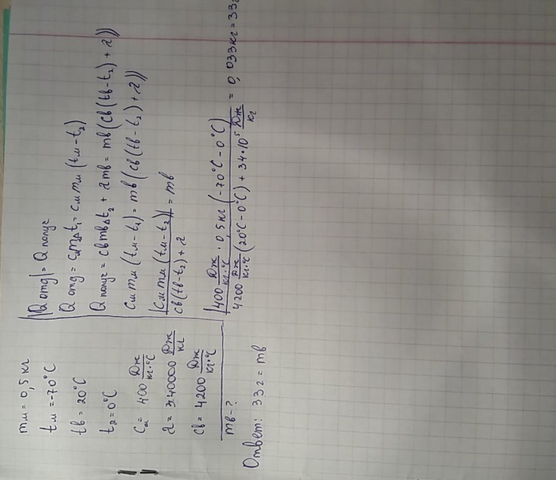 mм = 0,5 кг
tм = -70°C
tв = 20°C
t2 = 0°C
Cм = 400 Дж/кг·°C
λ = 340000 Дж/кг
Cв = 4200 Дж/кг·°C
mв - ?
|Q отд| = Q получ
Q отд = CмmмΔt1 = Cмmм (tм - t2)
Q получ = CвmвΔt2 + λmв = mв (Cв (tв - t2) + λ)
Cмmм (tм - t2) = mв (Cв (tв - t2) + λ)
|Cмmм (tм - t2)| / Cв (tв - t2) + λ = mв
|400 Дж/кг·°C · 0,5 кг (-70°C - 0°C)| / 4200 Дж/кг·°C (20°C - 0°C) + 34·10⁵ Дж/кг = 0,033 кг = 33г
Ответ: 33 г = mв